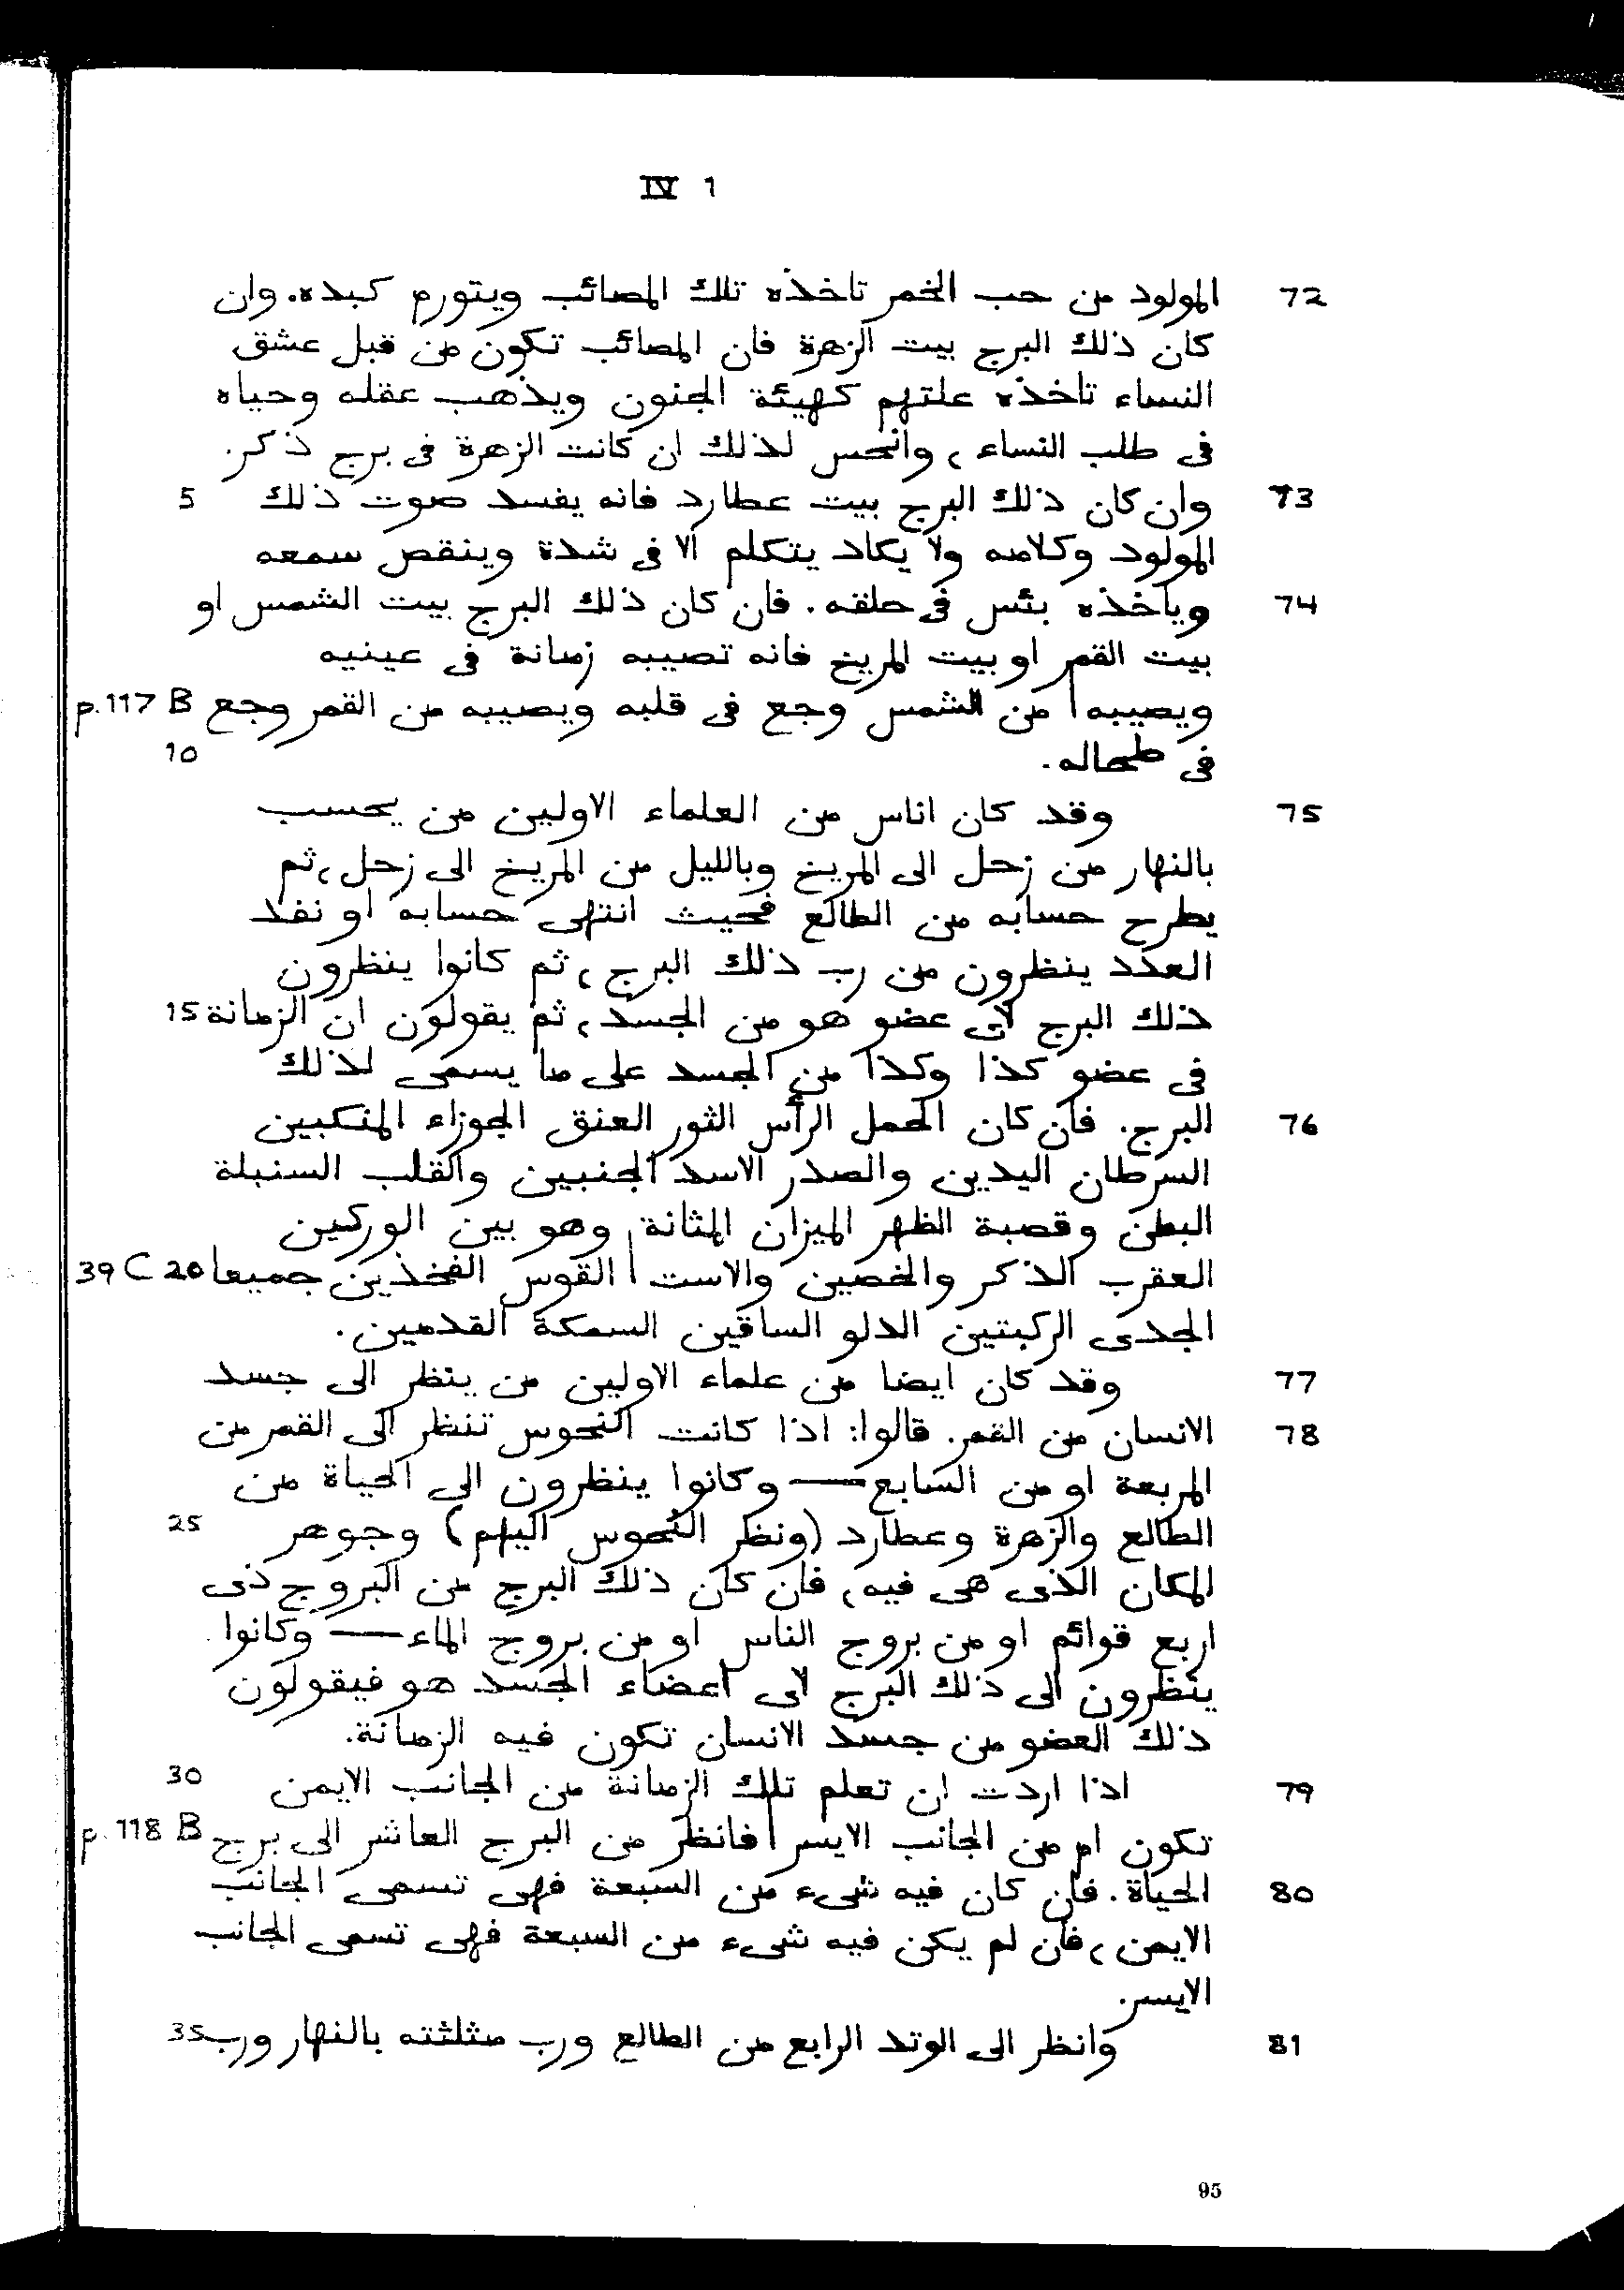 IV 1
72 المولود من حب الخمر تاخذه تلك المصائب ويتورم كبده. وان
كان ذلك البرج بيت الزهرة فان المصائب تكون من قبل عشق
النساء تاخذه علتهم كهيئة الجنون ويذهب عقله وحياه
فى طلب النساء، وانحس لذلك ان كانت الزهرة فى برج ذكر.
73 وان كان ذلك البرج بيت عطارد فانه يفسد صوت ذلك 5
المولود وكلامه ولا يكاد يتكلم الا فى شدة وينقص سمعه
74 وياخذه بئس فى حلقه. فان كان ذلك البرج بيت الشمس او
بيت القمر او بيت المريخ فانه تصيبه زمانة فى عينيه
ويصيبه | من الشمس وجع فى قلبه ويصيبه من القمر وجع p.117 B
فى طحاله. 10
75 وقد كان اناس من العلماء الاولين من يحسب
بالنهار من زحل الى المريخ وبالليل من المريخ الى زحل، ثم
يطرح حسابه من الطالع فحيث انتهى حسابه او نفد
العدد ينظرون من رب ذلك البرج، ثم كانوا ينظرون
ذلك البرج لاى عضو هو من الجسد، ثم يقولون ان الزمانة 15
فى عضو كذا وكذا من الجسد على ما يسمى لذلك
76 البرج. فان كان الحمل الرأس الثور العنق الجوزاء المنكبين
السرطان اليدين والصدر الاسد الجنبين والقلب السنبلة
البطن وقصبة الظهر الميزان المثانة وهو بين الوركين
العقرب الذكر والخصين والاست | القوس الفخذين جميعا 20 39 C
الجدى الركبتين الدلو الساقين السمكة القدمين.
77 وقد كان ايضا من علماء الاولين من ينظر الى جسد
78 الانسان من القمر. قالوا: اذا كانت النحوس تنظر الى القمر من
المربعة او من السابع — وكانوا ينظرون الى الحياة من
الطالع والزهرة وعطارد (ونظر النحوس اليهم) وجوهر 25
المكان الذى هى فيه، فان كان ذلك البرج من البروج ذى
اربع قوائم او من بروج الناس او من بروج الماء — وكانوا
ينظرون الى ذلك البرج لاى اعضاء الجسد هو فيقولون
ذلك العضو من جسد الانسان تكون فيه الزمانة.
79 اذا اردت ان تعلم تلك الزمانة من الجانب الايمن 30
تكون ام من الجانب الايسر | فانظر من البرج العاشر الى برج p.118 B
80 الحياة. فان كان فيه شىء من السبعة فهى تسمى الجانب
الايمن، فان لم يكن فيه شىء من السبعة فهى تسمى الجانب
الايسر.
81 وانظر الى الوتد الرابع من الطالع ورب مثلثته بالنهار ورب 35
95